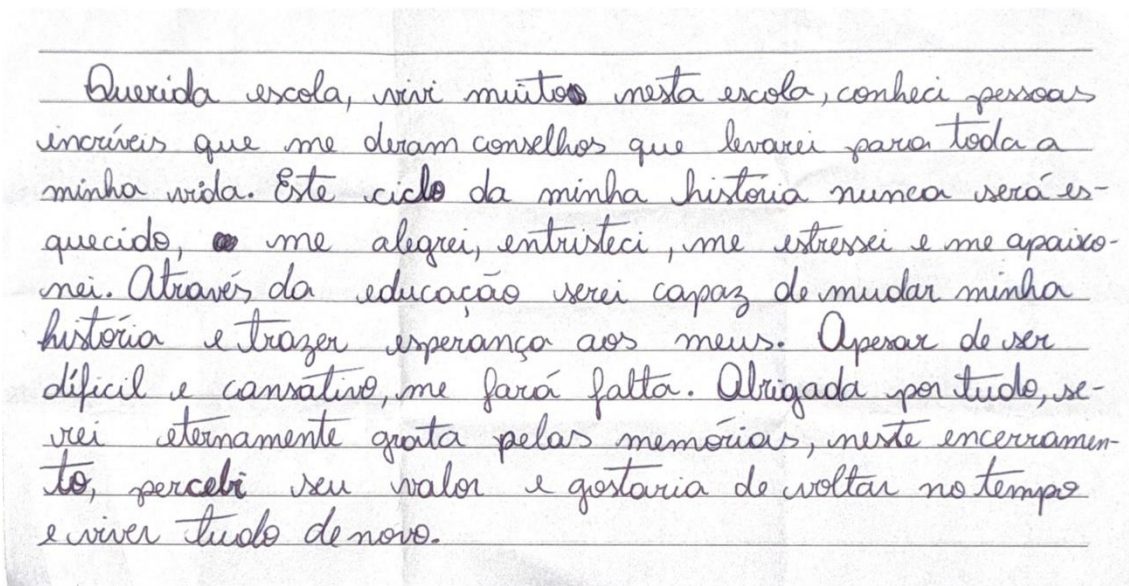 Querida escola, vivi muito nesta escola, conheci pessoas
incríveis que me deram conselhos que levarei para toda a
minha vida. Este ciclo da minha história nunca será es-
quecido, me alegrei, entristeci, me estressei e me apaixo-
nei. Através da educação serei capaz de mudar minha
história e trazer esperança aos meus. Apesar de ser
difícil e cansativo, me fará falta. Obrigada por tudo, se-
rei eternamente grata pelas memórias, neste encerramen-
to, percebi seu valor e gostaria de voltar no tempo
e viver tudo de novo.